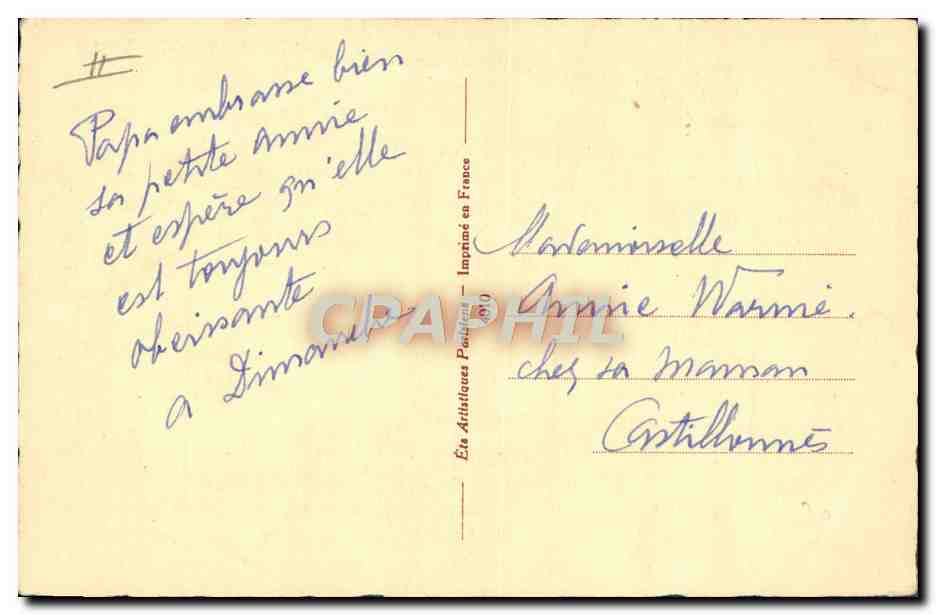 Papa embrasse bien
sa petite annie
et espère qu'elle
est toujours
obeissante
a Dimanche
Éts Artistiques Parisiens — Imprimé en France
910
CPARHIL
Mademoiselle
Annie Warmé.
chez sa Maman
Castillonnès